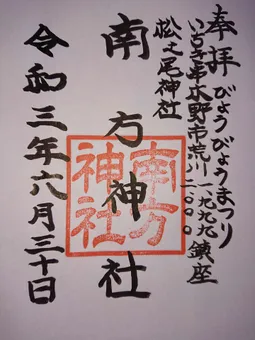 奉拝
びょうびょうまつり
いちき串木野市荒川一九九九
二〇〇〇鎮座
松尾神社
南方神社
南方神社
令和三年六月三十日